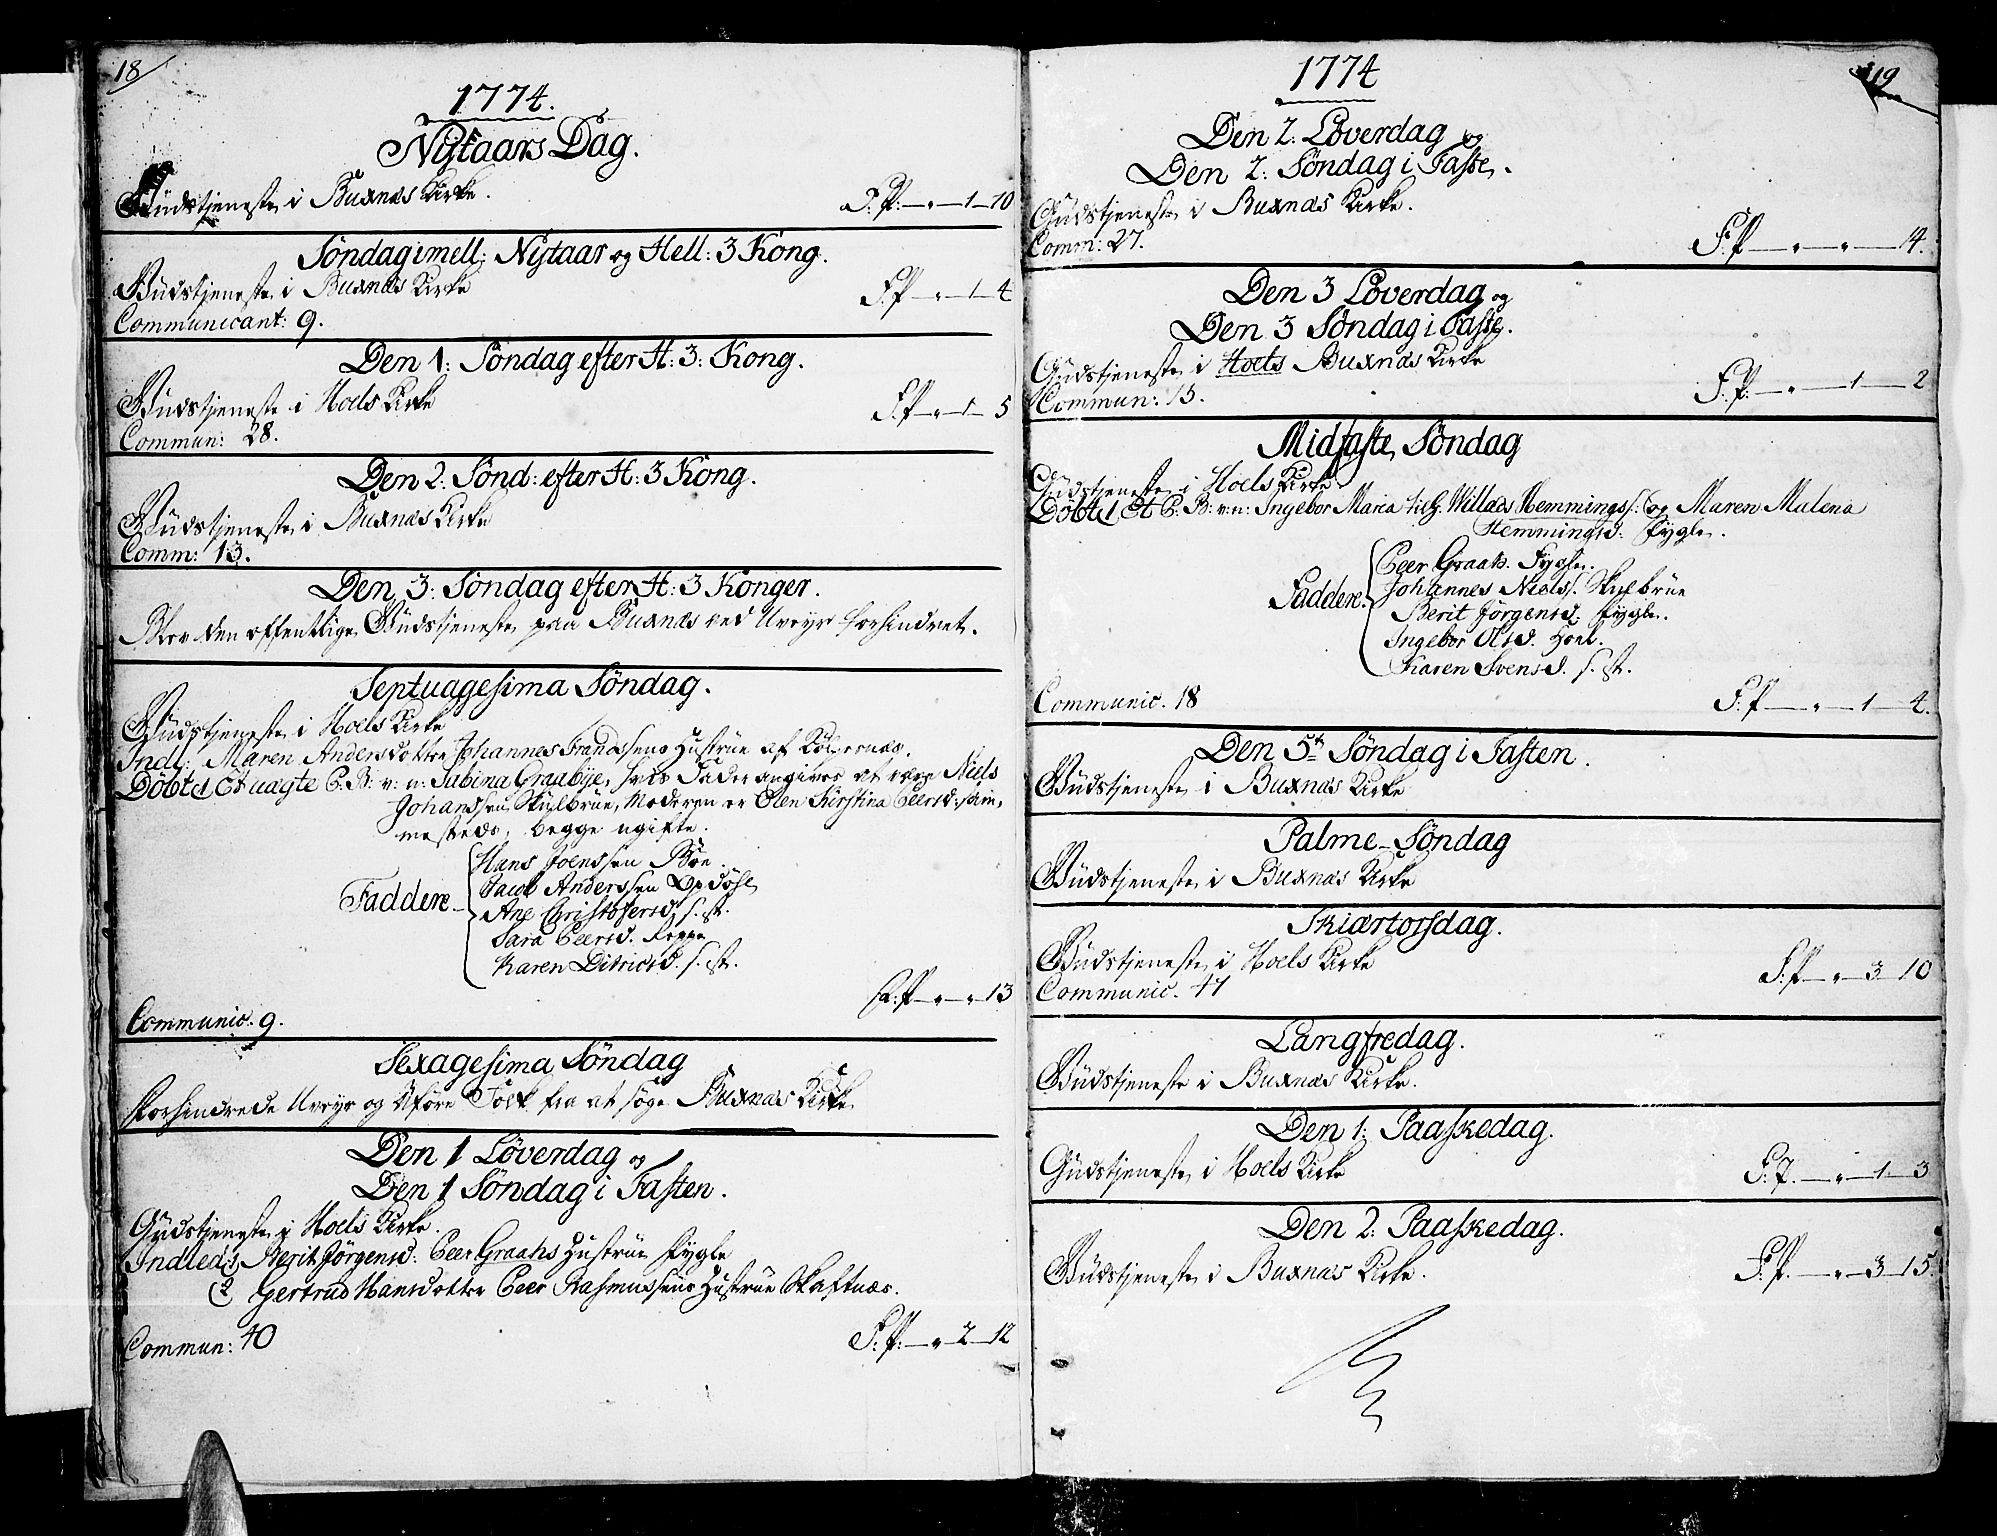 18
1774.
Nÿtaars Dag.
Gudstjeneste i Buxnæs Kirke.
F: P: — „ — 1 — 10
Söndag imell: Nÿtaar og Hell: 3 Kong.
Gudstjeneste i Buxnæs Kirke
F: P — „ — 1 — 4
Communicant: 9.
Den 1: Söndag efter H: 3: Kong.
Gudstjeneste i Hoels Kirke
F: P — „ — 1 — 5
Commun: 28.
Den 2: Sönd: efter H: 3 Kong.
Gudstjeneste i Buxnæs Kirke
Comm: 13.
Den 3: Söndag efter H: 3 Konger.
Blev den offentlige Gudstjeneste paa Buxnæs ved Uveyr forhindret.
Septuagesima Söndag.
Gudstjeneste i Hoels Kirke
Indl: Maren Andersdotter Johannes Frandssens Hustrue af
Döbt 1 Et uægte P: B: v: n: Sabina Graabye, hvis Fader angives at være Niels
Johanssen Skulbrue, Moderen er Olen Kirstina Peersd: sam-
mesteds, begge ugifte.
Faddere
Hans Joenssen Böe.
Jacob Anderssen Opdöhl
Ane Christofersd. s. st.
Sara Peersd. Reppe
Karen Ditricsd. s. st.
F: P — „ — „ — 13
Communic. 9.
Sexagesima Söndag
Forhindrede Uveyr og Uföre Folk fra at söge Buxnæs Kirke
Den 1 Löverdag og
Den 1 Söndag i Fasten.
Gudstjeneste i Hoels Kirke.
Indled: 1 Berit Jörgensd: Peer Graahs Hustrue Fygle
(2 Gertrud Hansdotter Peer Rasmussens Hustrue Skaftnæs.
Commun: 40
F: P: — „ — 2 — 12
19
1774
Den 2: Löverdag og
Den 2: Söndag i Faste.
Gudstjeneste i Buxnæs Kirke.
Comm: 27.
F: P — „ — „ — 14.
Den 3 Löverdag og
Den 3 Söndag i Faste.
Gudstjeneste i Hoels Buxnæs Kirke
Commun: 15.
F: P: — „ — 1 — 2
Midfaste Söndag
Gudstjeneste i Hoels Kirke
Döbt 1 Et P: B: v: n: Ingebor Maria til F. Willads Hemmings. og Maren Malena
Hemmingsd: Fygle.
Faddere.
Peer Graah. Fygle.
Johannes Niels. Skulbrue
Berit Jörgensd. Fygle.
Ingebor Olsd. Hoel.
Karen Svensd. s. st.
Communic. 18
F: P — „ — 1 — 4.
Den 5te Söndag i Fasten.
Gudstjeneste i Buxnæs Kirke
Palme-Söndag
Gudstjeneste i Buxnæs Kirke
Skiærtorsdag.
Gudstjeneste i Hoels Kirke
F: P — „ — 3 10
Communic. 47
Langfredag.
Gudstjeneste i Buxnæs Kirke.
Den 1: Paaskedag.
Gudstjeneste i Hoels Kirke
F: P. — „ — 1 — 3
Den 2: Paaskedag.
Gudstjeneste i Buxnæs Kirke.
F: P. — „ — 3 15.